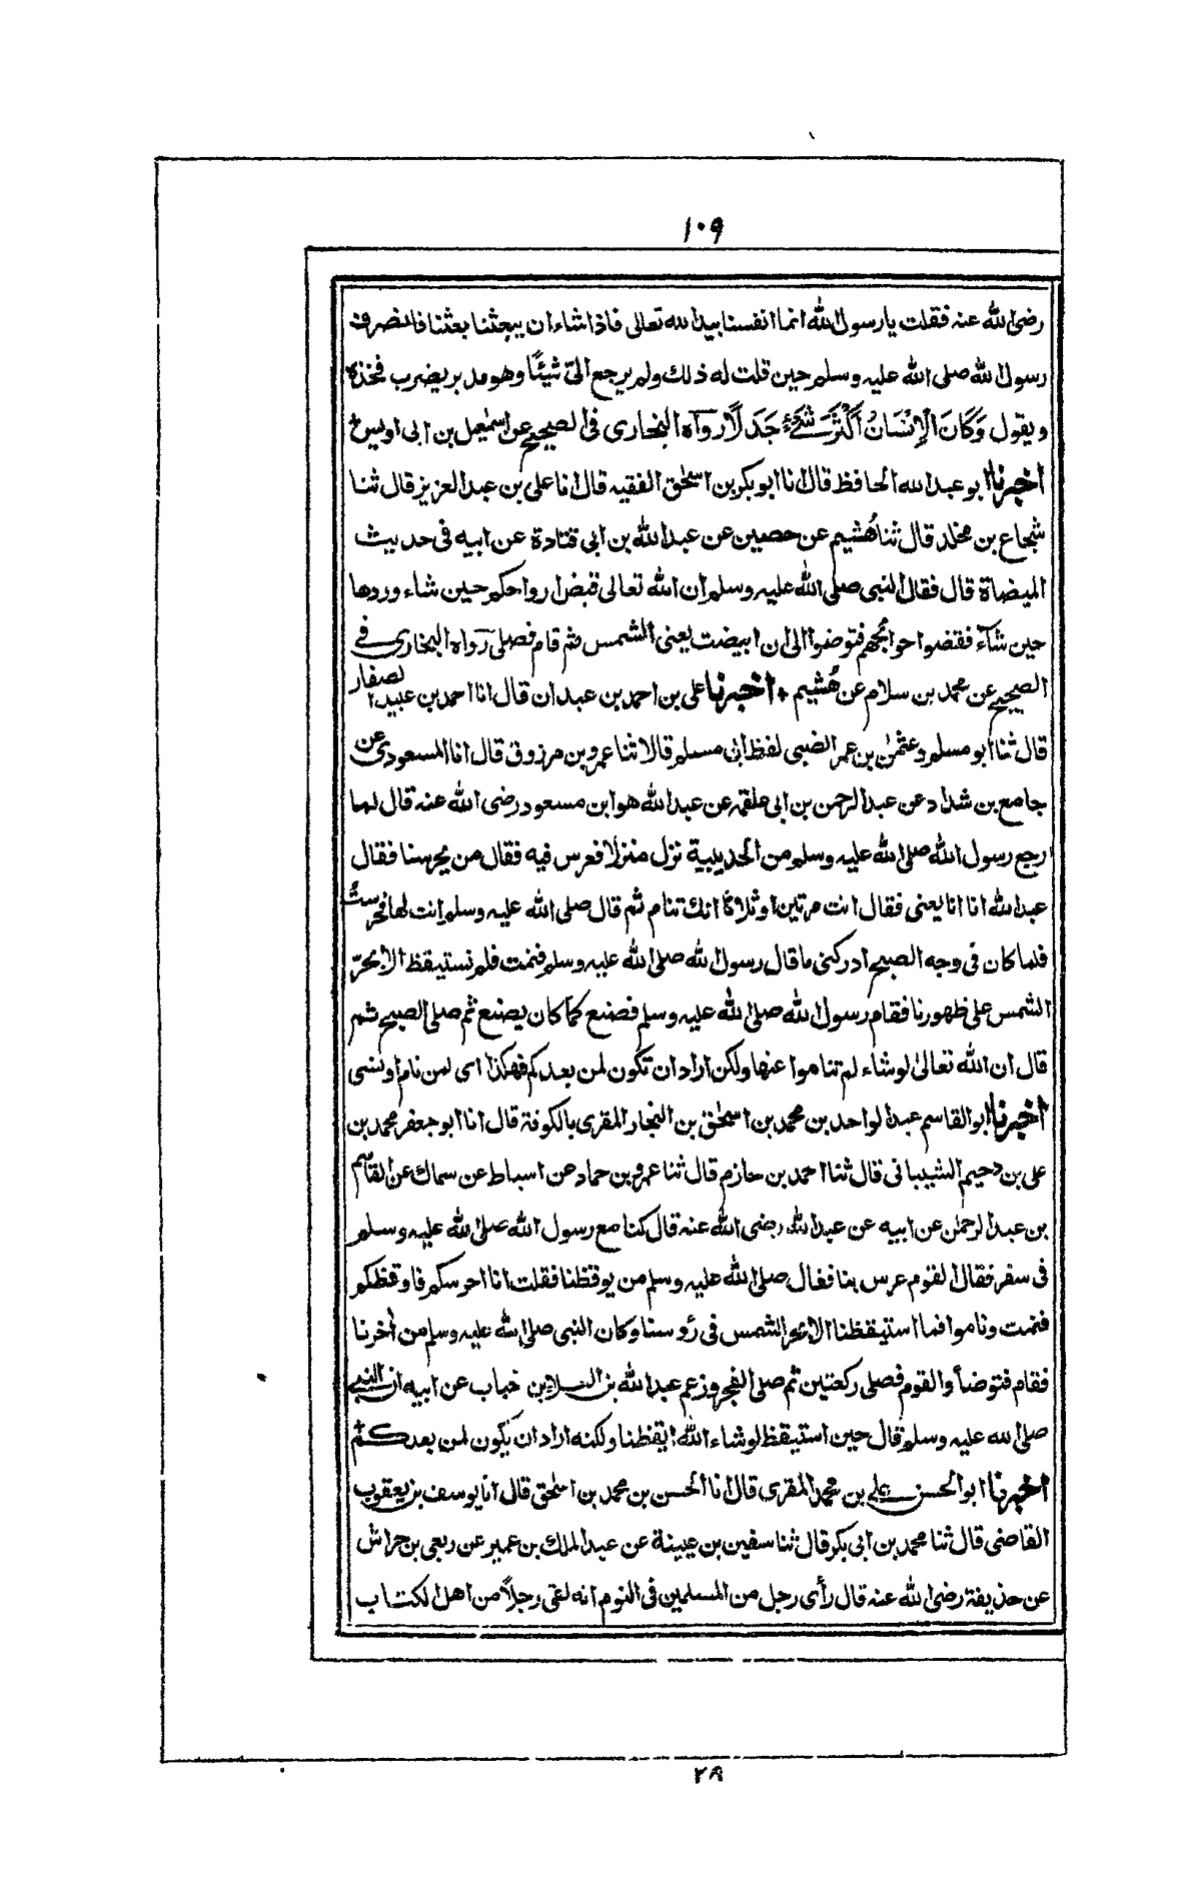 ١٠٩
رضى الله عنه فقلت يا رسول الله انما انفسنا بيد الله تعالى فاذا شاء ان يبعثنا بعثنا فانصرف
رسول الله صلى الله عليه وسلم حين قلت له ذلك ولم يرجع الىّ شيئًا وهو مدبر يضرب فخذه
ويقول وَكَانَ الْإِنْسَانُ أَكْثَرَ شَيْءٍ جَدَلًا رواه البخارى فى الصحيح عن اسمٰعيل بن ابى اويس
اخبرنا ابو عبد الله الحافظ قال انا ابو بكر بن اسحٰق الفقيه قال انا على بن عبد العزيز قال ثنا
شجاع بن مخلد قال ثنا هُشيم عن حصين عن عبد الله بن ابى قتادة عن ابيه فى حديث
الميضاة قال فقال النبى صلى الله عليه وسلم ان الله تعالى قبض ارواحكم حين شاء وردها
حين شآء فقضوا حوائجهم فتوضوا الى ان ابيضت يعنى الشمس ثم قام فصلى رواه البخارى فى
الصحيح عن محمد بن سلام عن هُشيم + اخبرنا على بن احمد بن عبدان قال انا احمد بن عبيد الصفار
قال ثنا ابو مسلم وعثمٰن بن عمر الضبى لفظ ابى مسلم قالا ثنا عمرو بن مرزوق قال انا المسعودى عن
جامع بن شداد عن عبد الرحمن بن ابى علقمة عن عبد الله هو ابن مسعود رضى الله عنه قال لما
رجع رسول الله صلى الله عليه وسلم من الحديبية نزل منزلا فعرس فيه فقال من يحرسنا فقال
عبد الله انا انا يعنى فقال انت مرتين او ثلاثا انك تنام ثم قال صلى الله عليه وسلم انت لها فحرستُ
فلما كان فى وجه الصبح ادركنى ما قال رسول الله صلى الله عليه وسلم فنمت فلم نستيقظ الا بحرّ
الشمس على ظهورنا فقام رسول الله صلى الله عليه وسلم فصنع كما كان يصنع ثم صلى الصبح ثم
قال ان الله تعالىٰ لو شاء لم تناموا عنها ولكن اراد ان تكون لمن بعدكم فهكذا اى لمن نام او نسى
اخبرنا ابو القاسم عبد الواحد بن محمد بن اسحٰق بن النجار المقرى بالكوفة قال انا ابو جعفر محمد بن
على بن دحيم الشيبانى قال ثنا احمد بن حازم قال ثنا عمرو بن حماد عن اسباط عن سماك عن القاسم
بن عبد الرحمٰن عن ابيه عن عبد الله رضى الله عنه قال كنا مع رسول الله صلى الله عليه وسلم
فى سفر فقال القوم عرس بنا فقال صلى الله عليه وسلم من يوقظنا فقلت انا احرسكم فاوقظكم
فنمت وناموا فما استيقظنا الا بحر الشمس فى رؤسنا وكان النبى صلى الله عليه وسلم من اٰخرنا
فقام فتوضأ والقوم فصلى ركعتين ثم صلى الفجر وزعم عبد الله بن السلا بن خباب عن ابيه ان النبى
صلى الله عليه وسلم قال حين استيقظ لو شاء الله ايقظنا ولكنه اراد ان يكون لمن بعدكم
اخبرنا ابو الحسن على بن محمد المقرى قال انا الحسن بن محمد بن اسحٰق قال انا يوسف بن يعقوب
القاضى قال ثنا محمد بن ابى بكر قال ثنا سفين بن عيينة عن عبد الملك بن عمير عن ربعى بن حراش
عن حذيفة رضى الله عنه قال رأى رجل من المسلمين فى النوم انه لقى رجلاً من اهل الكتاب
٢٨